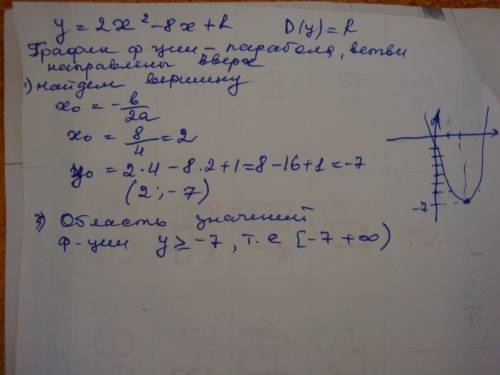 y = 2x² - 8x + 1 D(y) = R
График ф-ции - парабола, ветви
направлены вверх
1) найдем вершину
x₀ = -b/2a
x₀ = 8/4 = 2
y₀ = 2·4 - 8·2 + 1 = 8 - 16 + 1 = -7
(2; -7)
-7
2) Область значений
ф-ции y ≥ -7, т.е [-7 +∞)